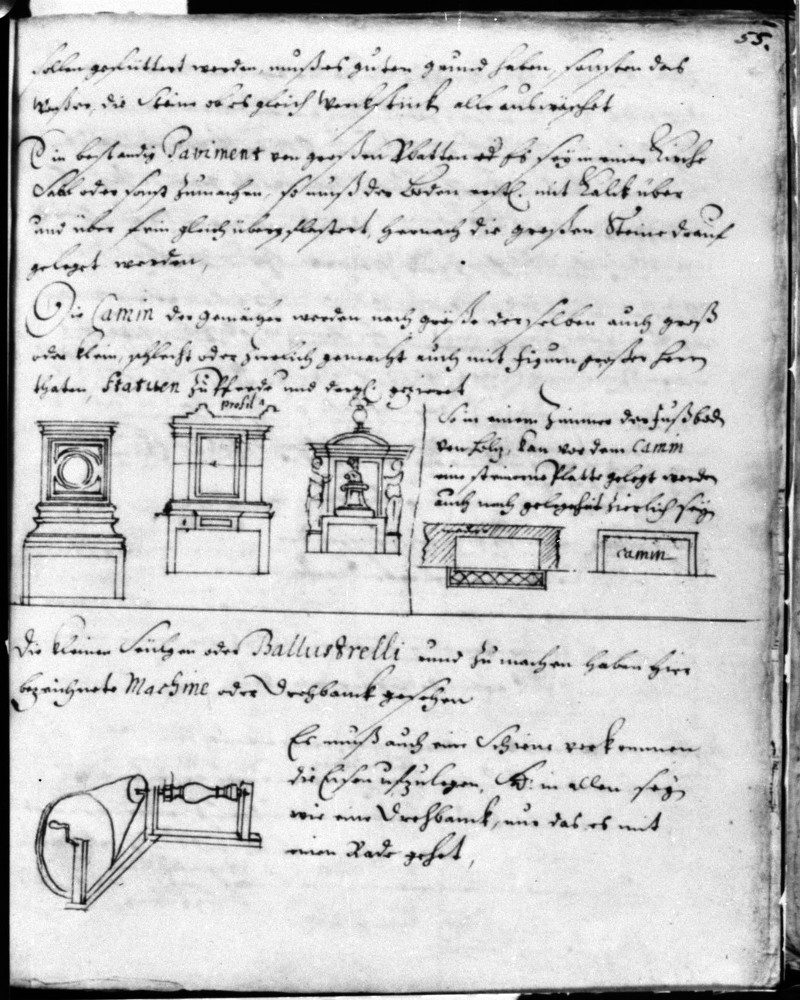 55.
sollen gefüttert werden, muß es guten grund haben, sonsten das
waßer, die Steine ob es gleich Werckstück alle auswäschet
Ein bestandig Paviment von großen Platten es sey in einer Kirche
Sahl oder sonst zumachen, so muß der Boden erstl. mit Kalck über
und über fein gleich übergepflastert, hernach die großen Steine drauf
geleget werden,
Die Camin der gemächer werden nach größe derselben auch groß
oder klein, schlecht oder zierlich gemacht auch mit figuren großer herrn
thaten, Statuen zu Pferde und dergl. gezieret
profil
So in einem Zimmer der fußbod
von holtz, kan vor dem Camin
eine steinerne Platte gelegt werden
auch nach gelegenheit zierlich sey
camin
Die kleinen Seülgen oder Ballustrelli rund zu machen haben hier
bezeichnete Machine oder Drehbanck gesehen
Es muß auch eine Schiene vorkommen
die Eisen aufzulegen, in allen sey
wie eine Drehbanck, nur das es mit
einen Rade gehet,